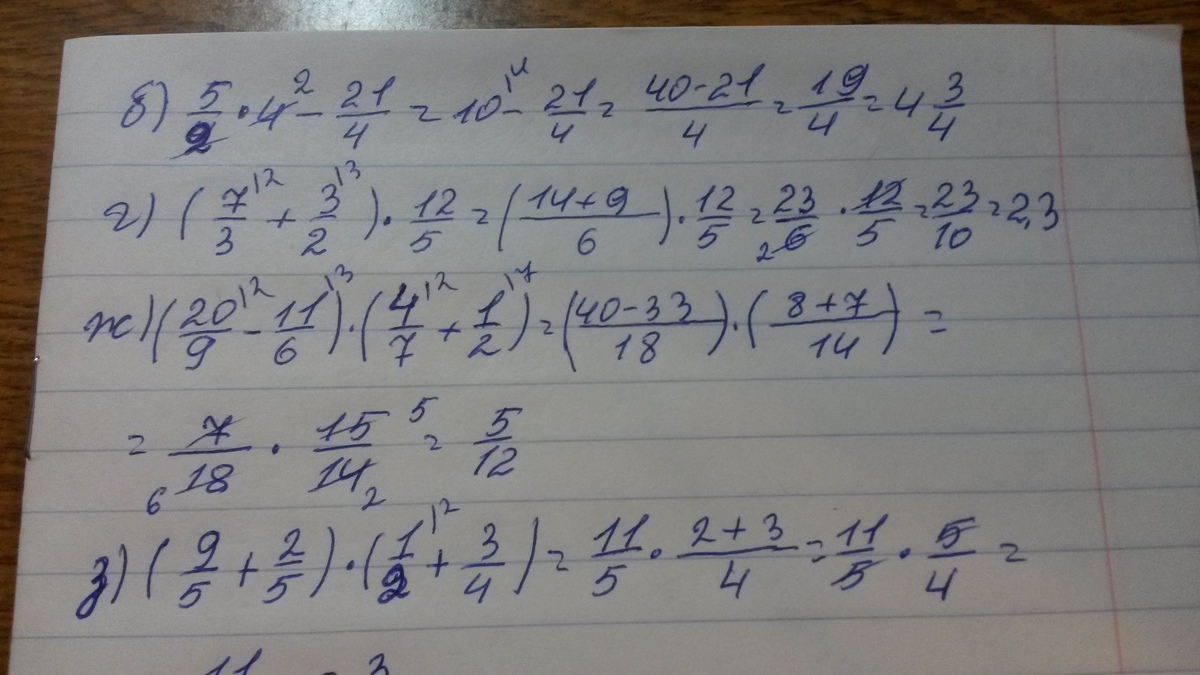 б) 5/2 · 4² − 21/4 = 10|⁴ − 21/4 = (40−21)/4 = 19/4 = 4 3/4
г) (7/3|² + 3/2|³) · 12/5 = ((14+9)/6) · 12/5 = 23/₂6 · 12/5 = 23/10 = 2,3
ж) (20/9|² − 11/6|³) · (4/7|² + 1/2|⁷) = ((40−33)/18) · ((8+7)/14) =
= 7/₆18 · 15⁵/14₂ = 5/12
з) (9/5 + 2/5) · (1/2|² + 3/4) = 11/5 · (2+3)/4 = 11/5 · 5/4 =
11 = 3